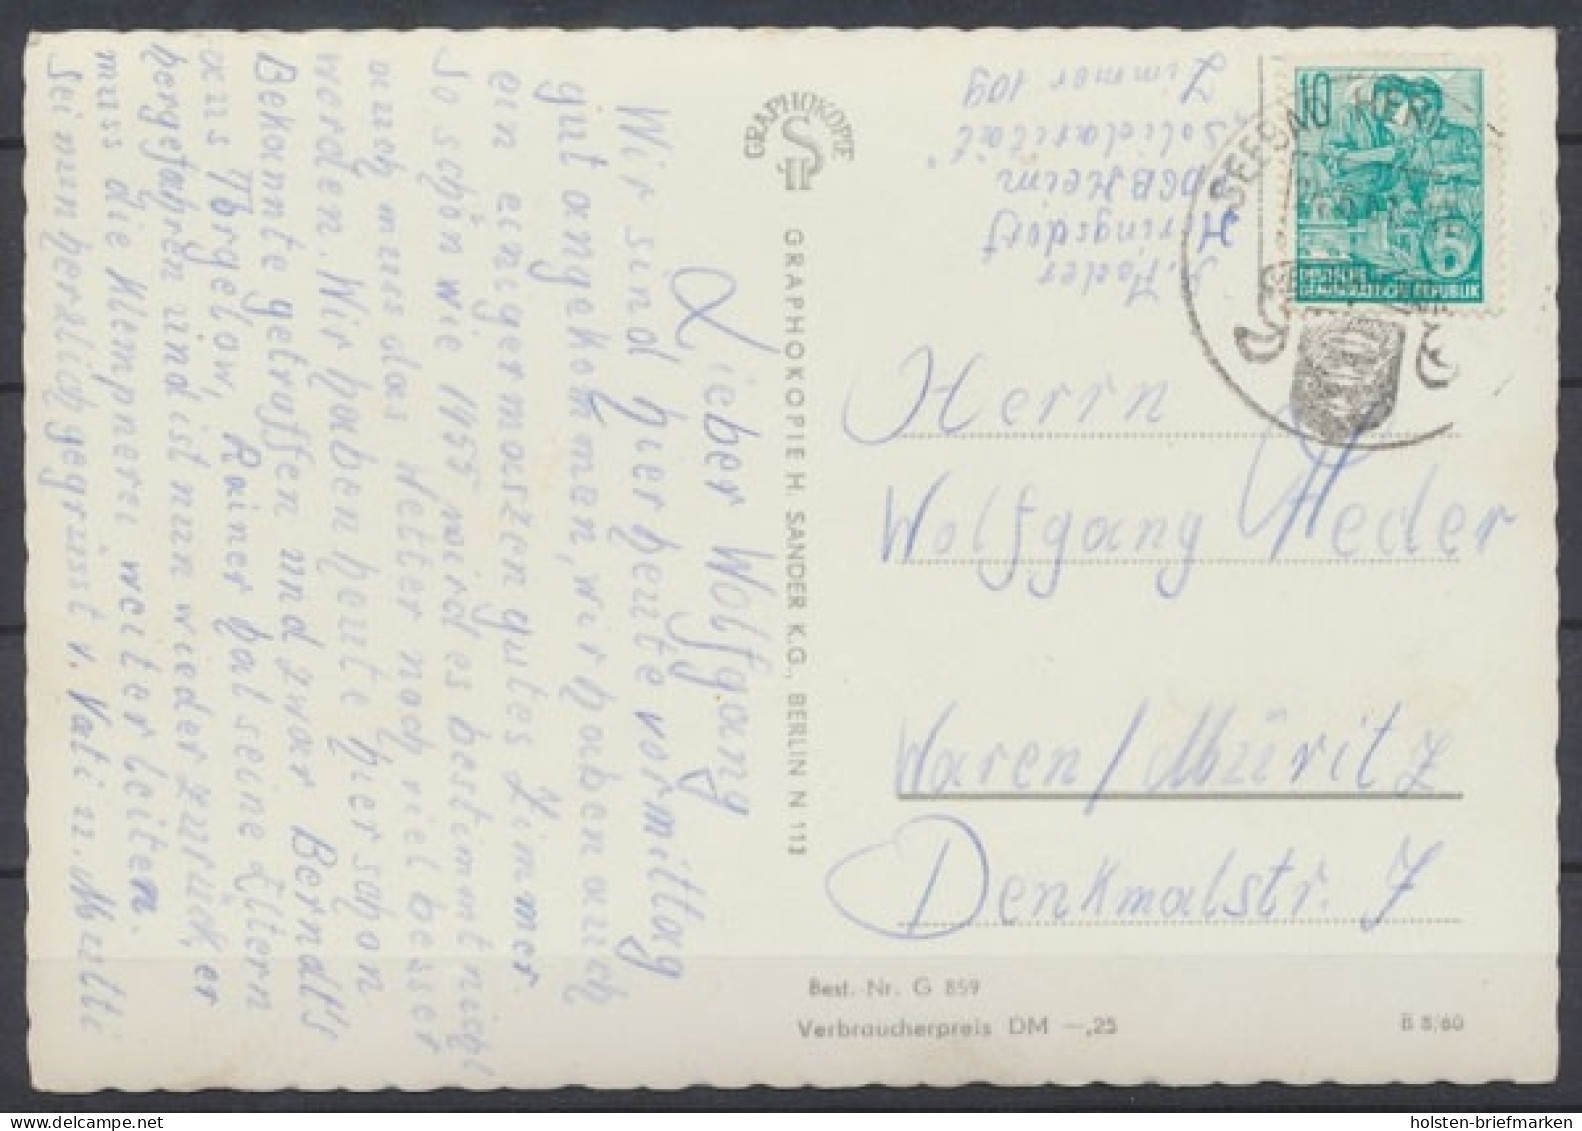 Lieber Wolfgang
Wir sind hier heute vormittag
gut angekommen, wir haben auch
ein einigermaszen gutes Zimmer
So schön wie 1955 wird es bestimmt nicht
auch muss das Wetter noch viel besser
werden. Wir haben heute hier schon
Bekannte getroffen und zwar Berndt's
aus Torgelow, Rainer hat seine Eltern
hergefahren und ist nun wieder zurück, er
muss die Klempnerei weiter leiten.
Sei nun herzlich gegrüsst v. Vati u. Mutti
GRAPHOKOPIE
H S
GRAPHOKOPIE H. SANDER K.G., BERLIN N 113
Heringsdorf
FDGB Heim
"Solidarität"
Zimmer 109
10
5
DEUTSCHE
DEMOKRATISCHE REPUBLIK
SEEBAD HER
Herrn
Wolfgang
Waren/Müritz
Denkmalstr. 7
Best.-Nr. G 859
Verbraucherpreis DM —,25
B 5/60
holsten-briefmarken